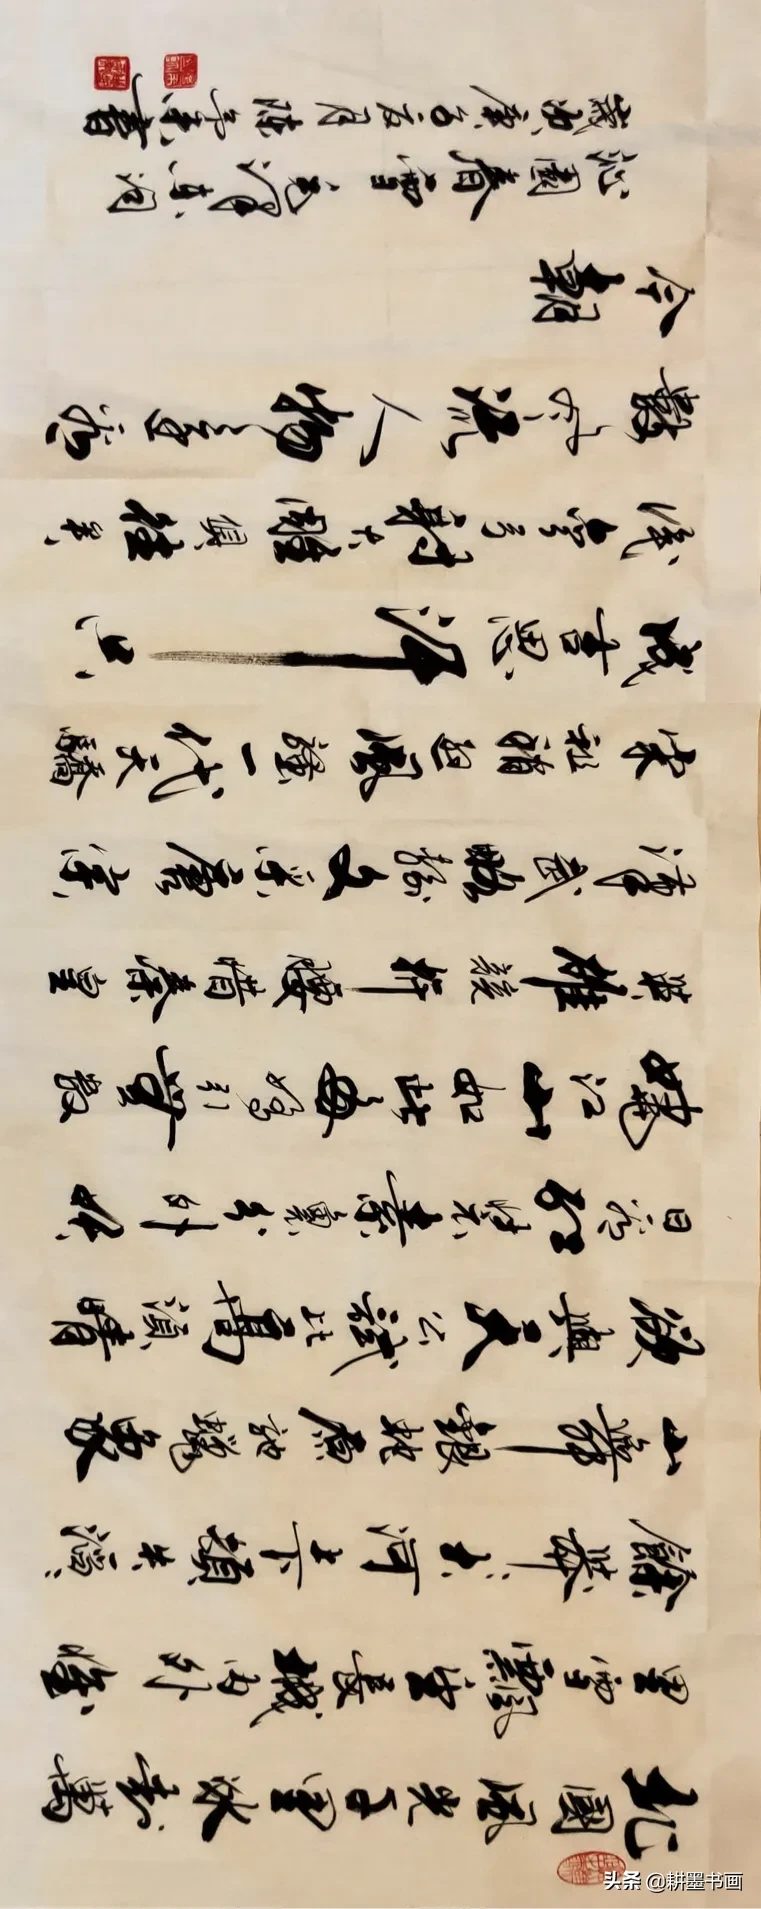 北國風光千里冰封萬
里雪飄望長城内外惟
餘莽〻大河上下頓失滔〻
山舞銀蛇原馳蠟象
欲與天公試比高須晴
日看紅裝素裹分外妖
嬈江山如此多嬌引無數
英雄競折腰惜秦皇
漢武略輸文采唐宗
宋祖稍遜風騷一代天驕
成吉思汗只
識彎弓射大雕俱往矣
數風流人物還看
今朝
沁園春雪毛澤東詞
歲次庚子月書
头条 @耕墨书画